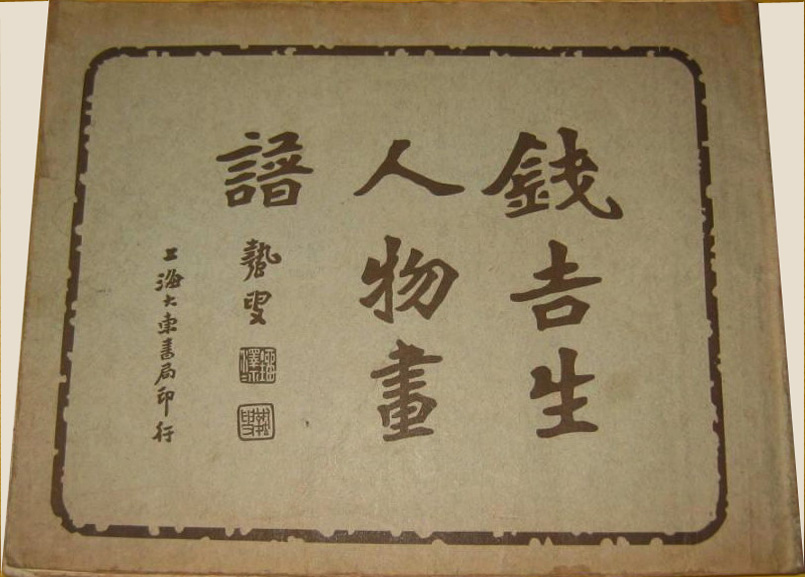 錢吉生
人物畫
譜
蟄叟
上海大東書局印行